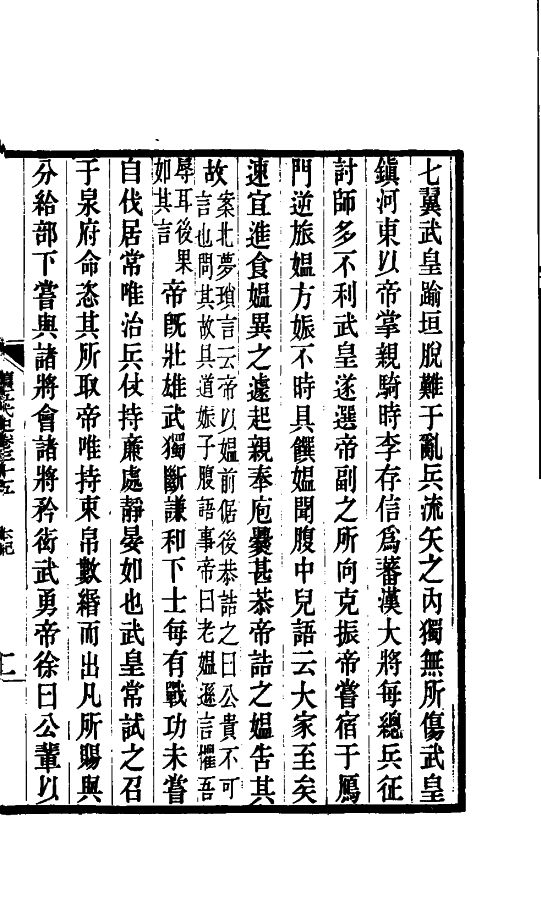 七翼武皇踰垣脫難于亂兵流矢之內獨無所傷武皇
鎮河東以帝掌親騎時李存信爲蕃漢大將每總兵征
討師多不利武皇遂選帝副之所向克振帝嘗宿于鴈
門逆旅媼方娠不時具饌媼聞腹中兒語云大家至矣
速宜進食媼異之遽起親奉庖爨甚恭帝詰之媼吿其
故
案北夢瑣言云帝以媼前倨後恭詰之曰公貴不可
言也問其故具道娠子腹語事帝曰老媼遜言懼吾
辱耳後果
如其言
帝旣壯雄武獨斷謙和下士每有戰功未嘗
自伐居常唯治兵仗持廉處靜晏如也武皇常試之召
于泉府命恣其所取帝唯持束帛數緡而出凡所賜與
分給部下嘗與諸將會諸將矜衒武勇帝徐曰公輩以
本紀